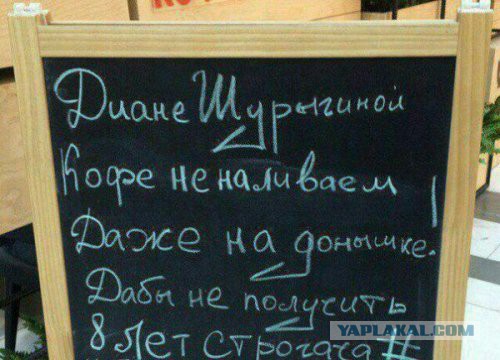 Диане Шурыгиной
Кофе не наливаем
Даже на донышке!
Дабы не получить
8 лет строгача #
YAPLAKAL.COM